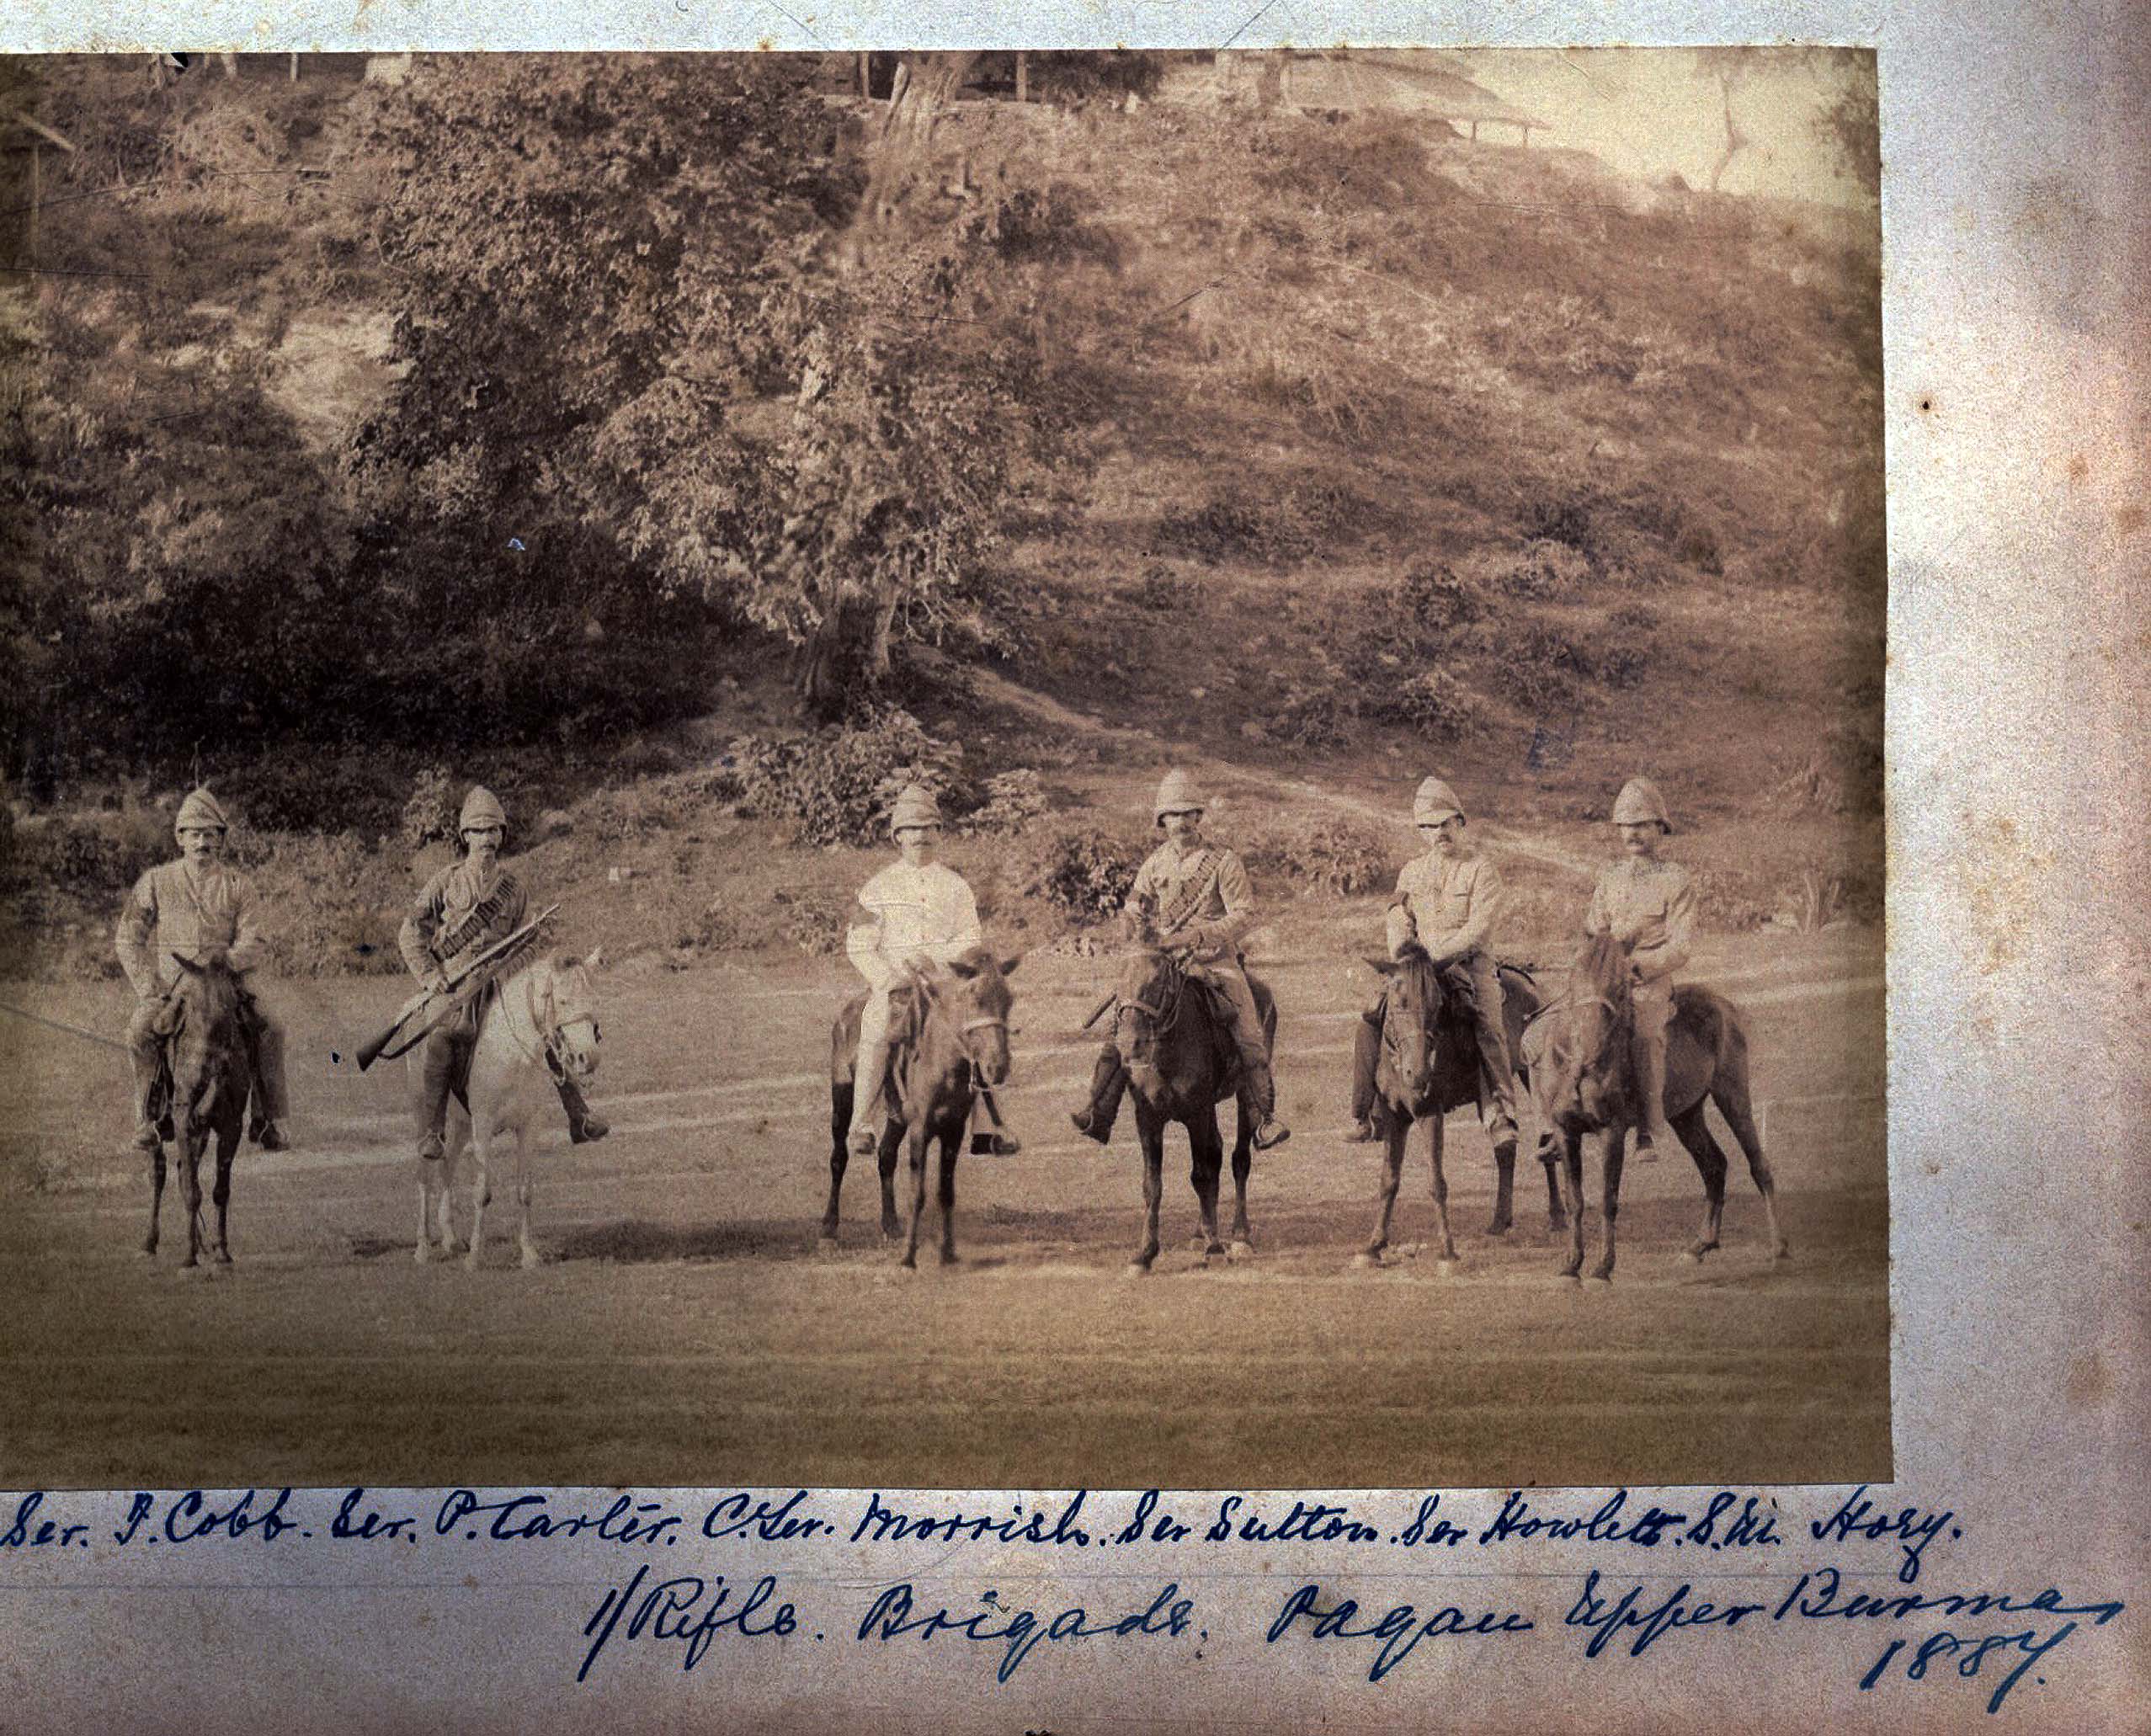 Ser. F. Cobb. Ser. P. Carter. C. Ser. Morrish. Ser Sutton. Ser Howlett. S.M. Hosy.
1/Rifle. Brigade. Pagan Upper Burma
1887.